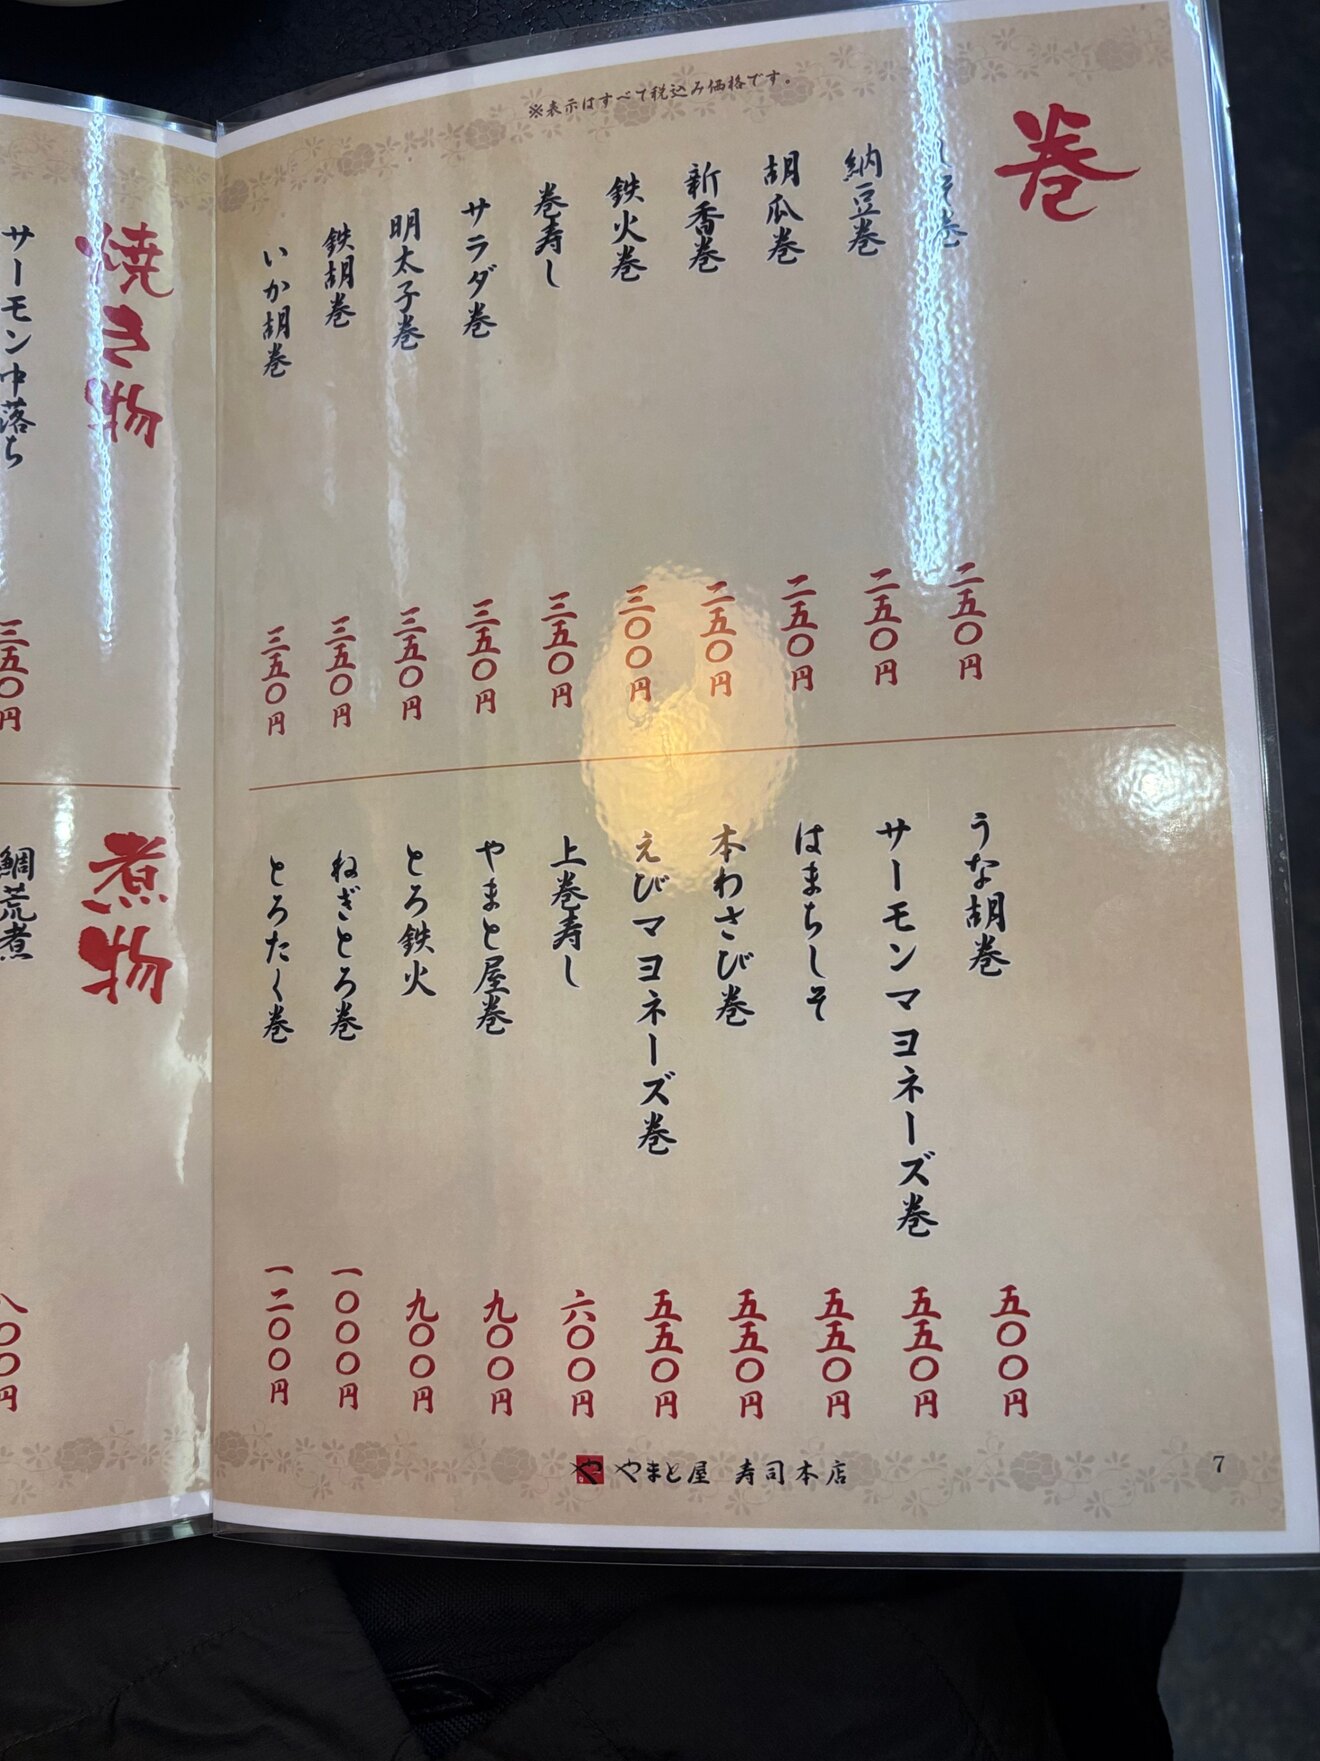 ※表示はすべて税込み価格です。
巻
しそ巻
二五〇円
納豆巻
二五〇円
胡瓜巻
二五〇円
新香巻
二五〇円
鉄火巻
三〇〇円
巻寿し
三五〇円
サラダ巻
三五〇円
明太子巻
三五〇円
鉄胡巻
三五〇円
いか胡巻
三五〇円
うな胡巻
五〇〇円
サーモンマヨネーズ巻
五五〇円
はまちしそ
五五〇円
本わさび巻
五五〇円
えびマヨネーズ巻
五五〇円
上巻寿し
六〇〇円
やまと屋巻
九〇〇円
とろ鉄火
九〇〇円
ねぎとろ巻
一〇〇〇円
とろたく巻
一二〇〇円
や やまと屋 寿司本店
7
焼き物
サーモン中落ち
三五〇円
煮物
鯛荒煮
八〇〇円